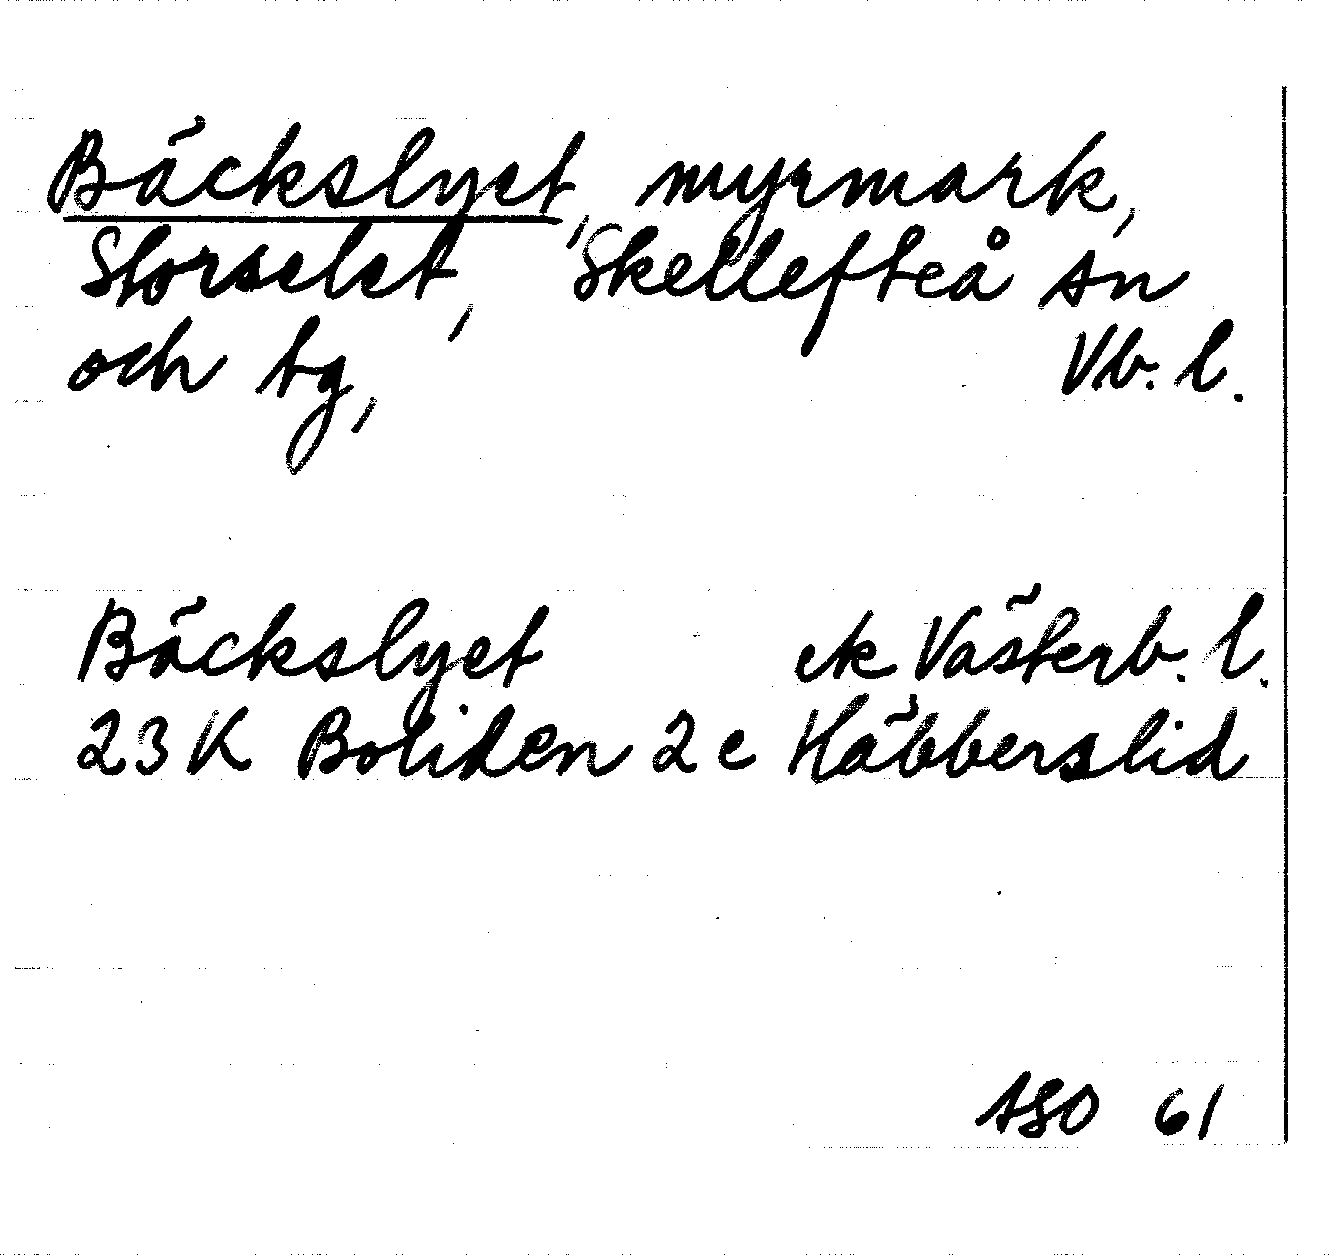 Bäckslyet, myrmark,
Storselet, Skellefteå sn
och tg, Vb. l.
Bäckslyet ek Västerb. l.
23 K Boliden 2 c Häbberslid
ASO 61